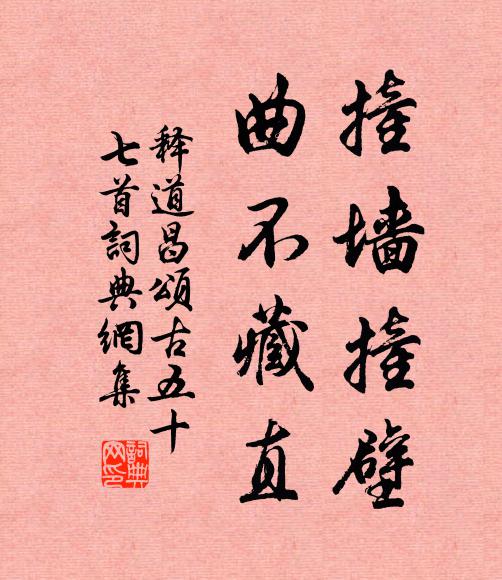 撞墙撞壁
曲不藏直
释道昌颂古五十
七首词典网集
词典网印